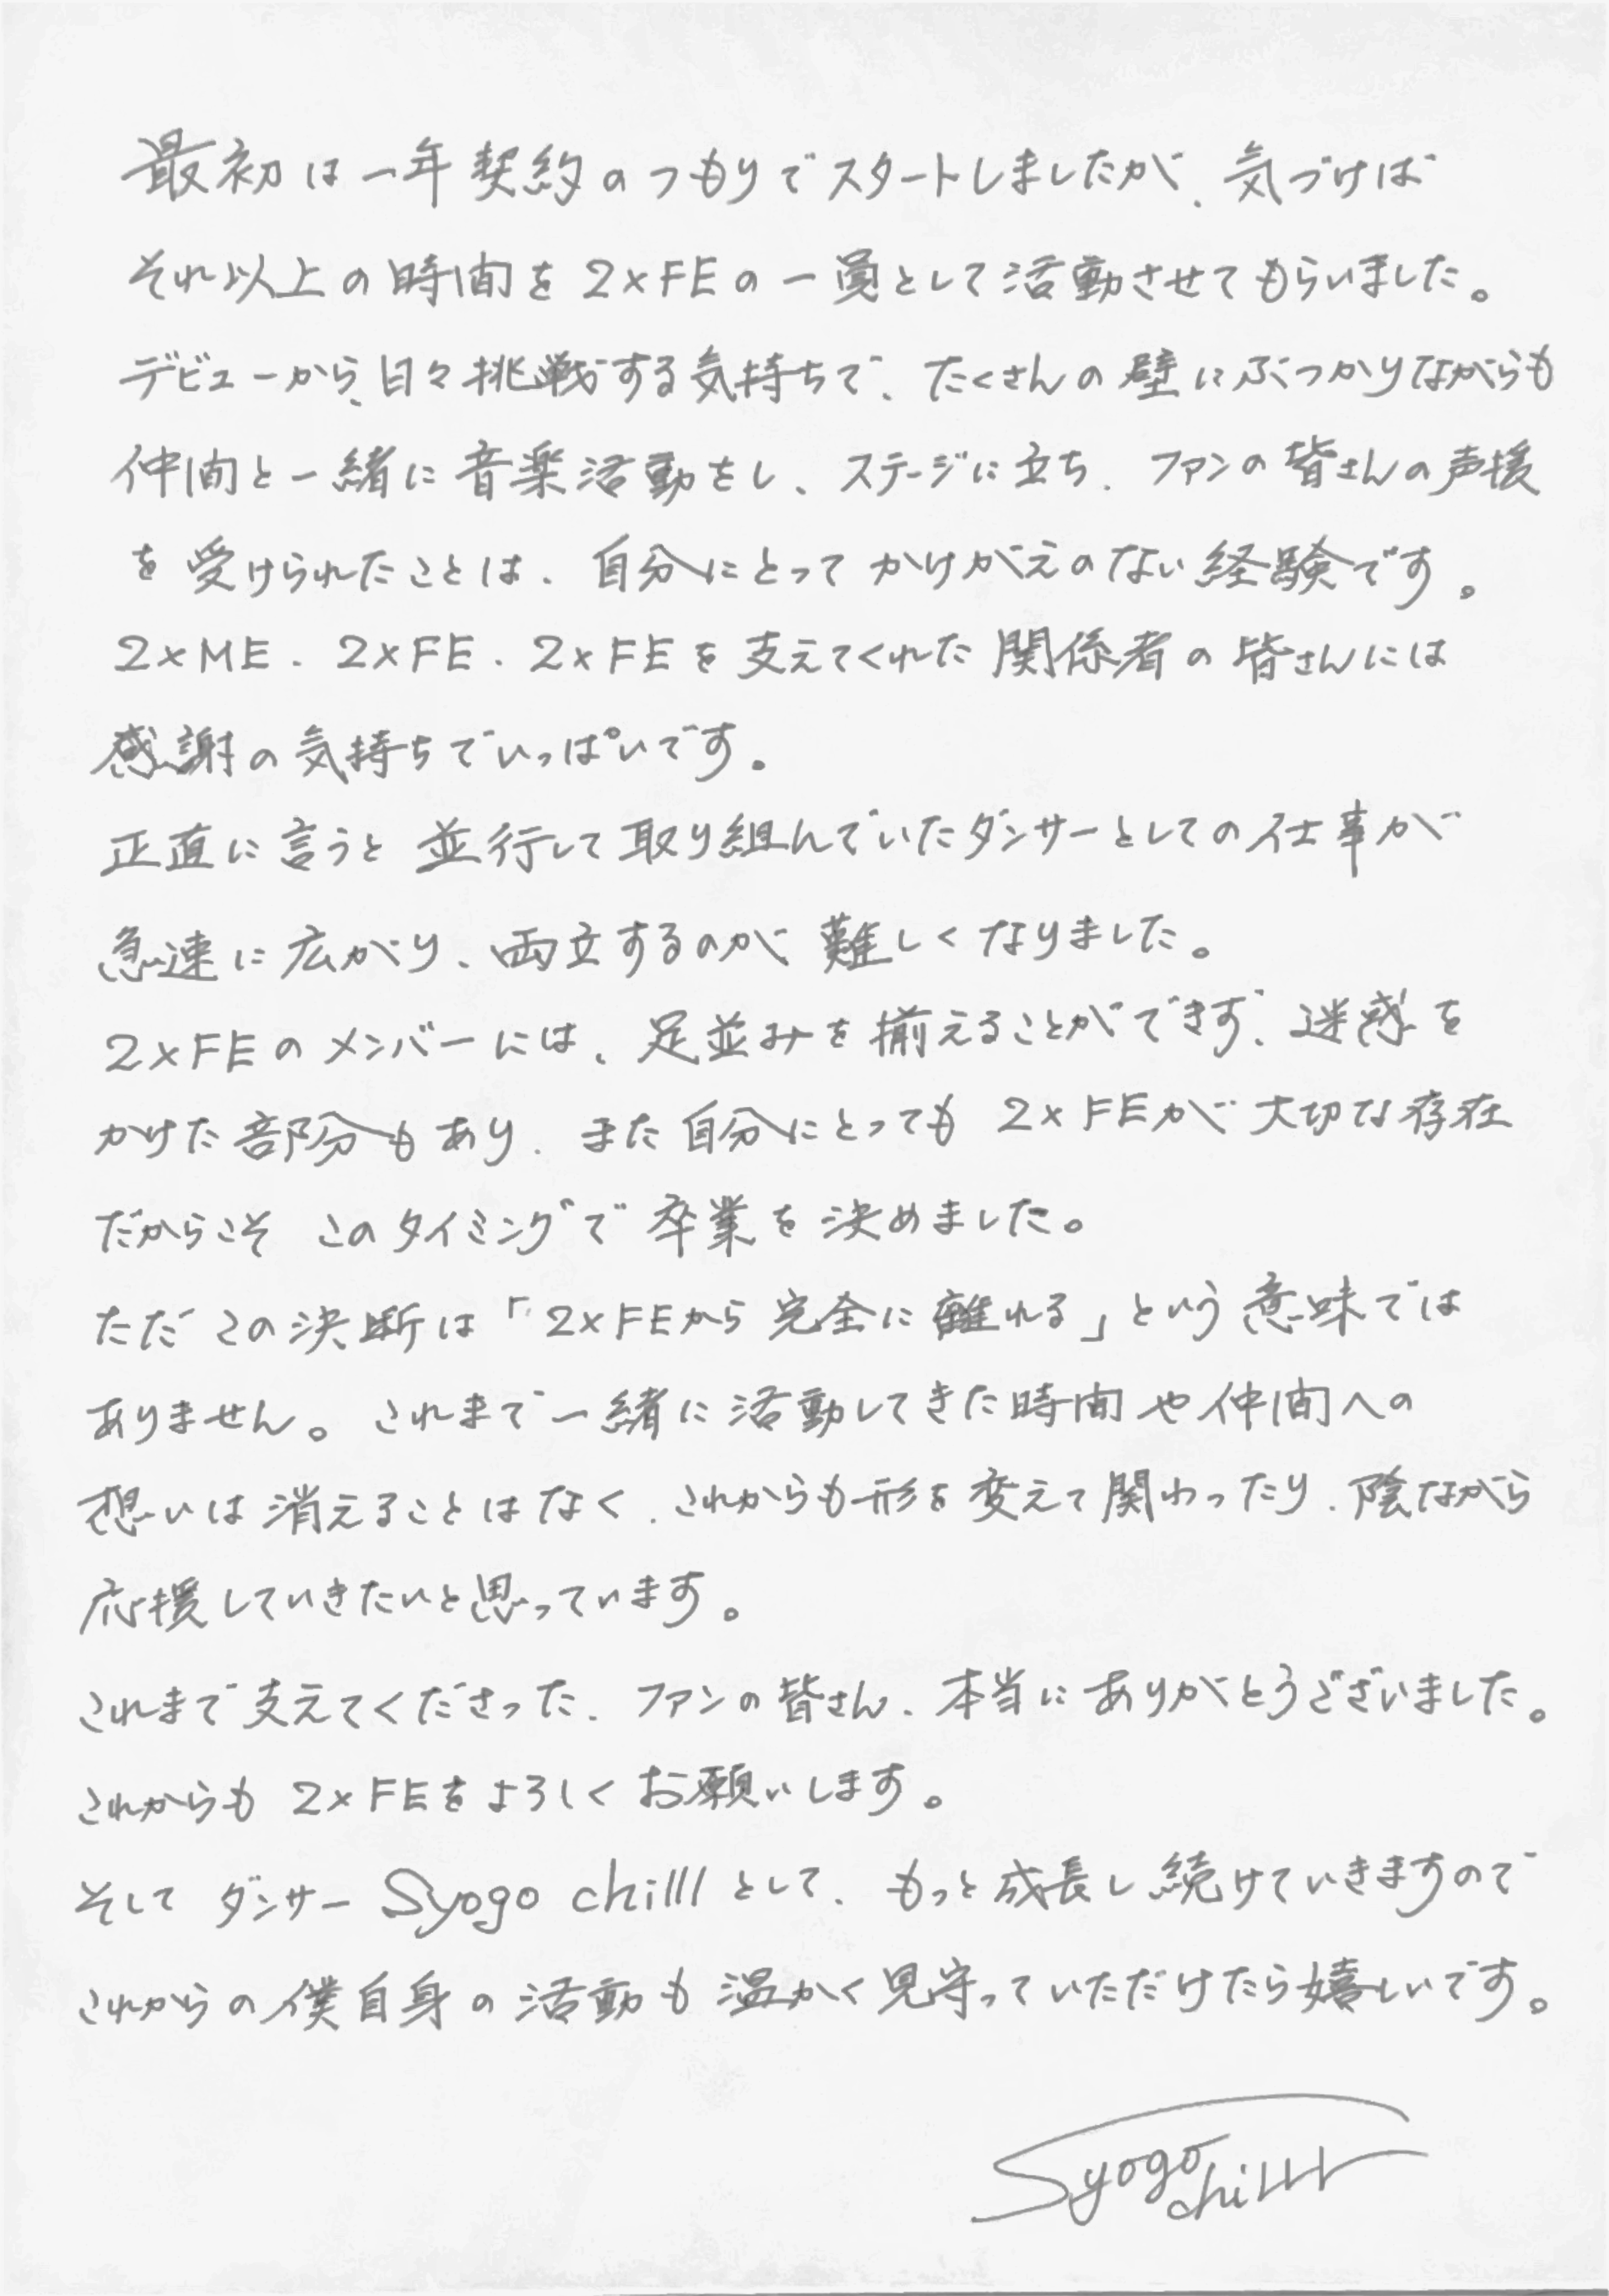 最初は一年契約のつもりでスタートしましたが、気づけば
それ以上の時間を2×FEの一員として活動させてもらいました。
デビューから、日々挑戦する気持ちで、たくさんの壁にぶつかりながらも
仲間と一緒に音楽活動をし、ステージに立ち、ファンの皆さんの声援
を受けられたことは、自分にとってかけがえのない経験です。
2×ME、2×FE、2×FEを支えてくれた関係者の皆さんには
感謝の気持ちでいっぱいです。
正直に言うと並行して取り組んでいたダンサーとしての仕事が
急速に広がり、両立するのが難しくなりました。
2×FEのメンバーには、足並みを揃えることができず、迷惑を
かけた部分もあり、また自分にとっても2×FEが大切な存在
だからこそ このタイミングで卒業を決めました。
ただこの決断は「2×FEから完全に離れる」という意味では
ありません。これまで一緒に活動してきた時間や仲間への
想いは消えることはなく、これからも形を変えて関わったり、陰ながら
応援していきたいと思っています。
これまで支えてくださった、ファンの皆さん、本当にありがとうございました。
これからも2×FEをよろしくお願いします。
そしてダンサー Syogo chilllとして、もっと成長し続けていきますので
これからの僕自身の活動も温かく見守っていただけたら嬉しいです。
Syogo
chilll